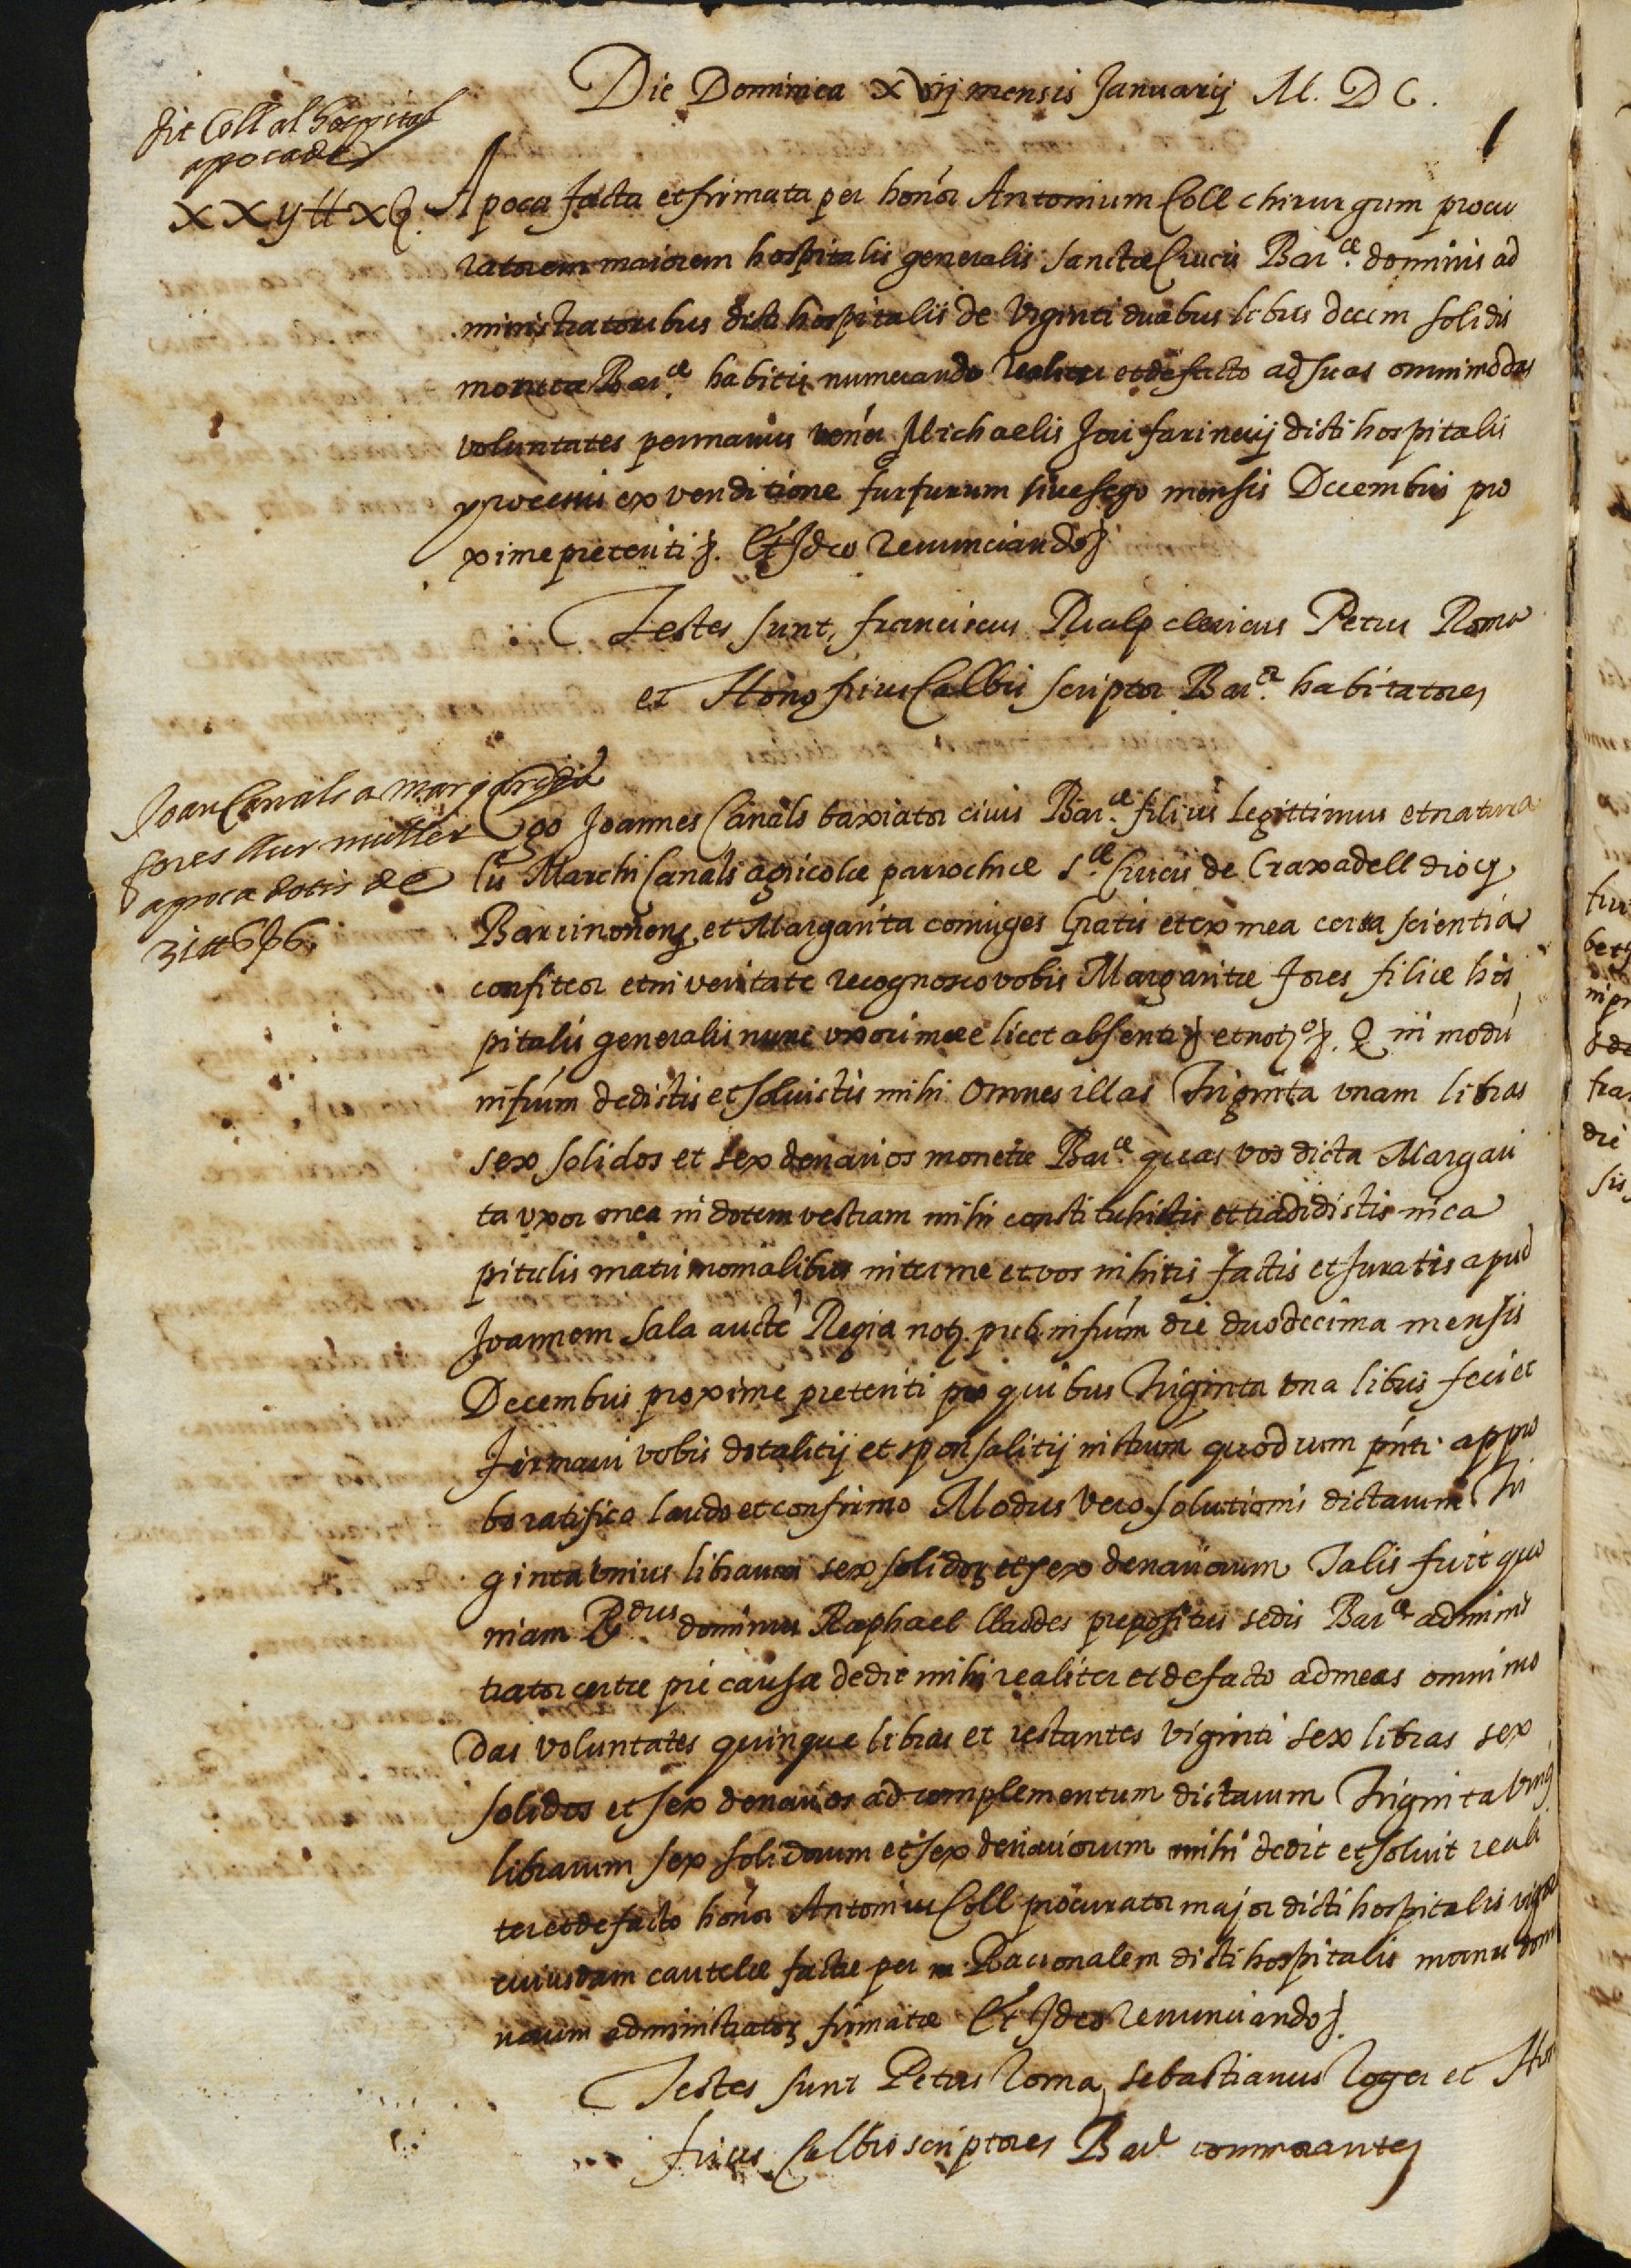 Die Dominica xviij mensis Januarij M. D C.
1
dit Coll al hospital
apoca de
xxij ll x ß.
Apoca facta et firmata per honor Antonium Coll chirurgum procu
ratorem maiorem hospitalis generalis sanctæ Crucis Bar.ce dominis ad
ministratoribus dicti hospitalis de viginti duabus libris decem solidis
monetæ Bar.ce habitis numerando realiter et de facto ad suas omnimodas
voluntates per manus vener Michaelis Jori farinerij dicti hospitalis
processis ex venditione furfurum sive sego mensis Decembris pro
xime preteriti &. Et Ideo renunciando &
Testes sunt, franciscus Rialp clericus Petrus Roma
et Honofrius Calbis scriptor Bar.ce habitatores
Joan Canals a margarida
fores sur muller
apoca dotis de
31 ll 6 ß 6.
Ego Joannes Canals baxiator civis Bar.ce filius legittimus et natura
lis Marchi Canals agricolæ parrochiæ S.ce Crucis de Craxadell diocs
Barcinonens, et Margarita coniuges Gratis et ex mea certa scientia
confiteor et in veritate recognosco vobis Margaritæ fores filiæ hos
pitalis generalis nunc uxori meæ licet absenti & et noto &. Q in modu
infrim dedistis et solvistis mihi omnes illas Triginta unam libras
sex solidos et sex denarios monetæ Bar.ce quas vos dicta Margari
ta uxor mea in dotem vestram mihi constituhistis et tradidistis in ca
pitulis matrimonialibus inter me et vos inhitis factis et furatis apud
Joannem Sala aucte Regia not. pub. infrim die duodecima mensis
Decembris proxime preteriti pro quibus Triginta una libris feci et
firmavi vobis dotalitij et sponsalitij instrum quod cum pnti appro
bo ratifico laudo et confirmo Modus vero solutionis dictarum Tri
ginta unius librarum sex solidos et sex denariorum Talis fuit quo
niam Rdus dominus Raphael Llardes prepositus sedis Bar.ce adminis
trator certæ pie causæ dedit mihi realiter et de facto ad meas omnimo
das voluntates quinque libras et restantes viginti sex libras sex
solidos et sex denarios ad complementum dictarum Triginta uni9
librarum sex solidorum et sex denariorum mihi dedit et solvit reali
ter et de facto honor Antonius Coll procurator major dicti hospitalis vigore
cuiusdam cautelæ factæ per Racionalem dicti hospitalis manu domi
norum administrator firmatæ Et Ideo renunciando &.
Testes sunt Petrus Roma, Sebastianus Roger et Hono
frius Calbis scriptores Bar.e commorantes